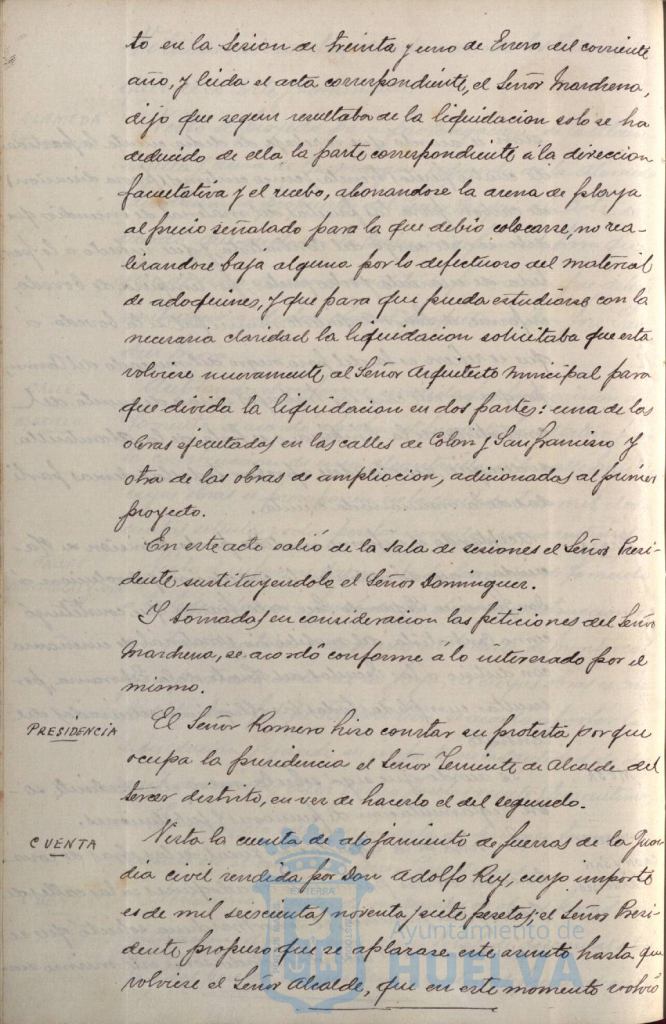 to en la Sesion de treinta y uno de Enero del corriente
año, y leida el acta correspondiente, el Señor Marchena,
dijo que segun resultaba de la liquidacion solo se ha
deducido de ella la parte correspondiente á la direccion
facultativa y el recebo, abonandose la arena de playa
al precio señalado para la que debió colocarse, no rea-
lisandose baja alguna por lo defectuoso del material
de adoquines, y que para que pueda estudiarse con la
necesaria claridad la liquidacion solicitaba que esta
volviese nuevamente al Señor Arquitecto Municipal para
que divida la liquidacion en dos partes: una de las
obras ejecutadas en las calles de Colon y San Francisco y
otra de las obras de ampliacion, adicionadas al primer
proyecto.
En este acto salió de la sala de sesiones el Señor Presi-
dente sustituyendole el Señor Dominguez.
Y tomadas en consideracion las peticiones del Señor
Marchena, se acordó conforme á lo interesado por el
mismo.
PRESIDENCIA
El Señor Romero hizo constar su protesta por que
ocupa la presidencia el Señor Teniente de Alcalde del
tercer distrito, en vez de hacerlo el del segundo.
CUENTA
Vista la cuenta de alojamiento de fuerzas de la Guar-
dia civil rendida por Don Adolfo Rey, cuyo importe
es de mil seiscientas noventa y siete pesetas, el Señor Presi-
dente propuso que se aplazase este asunto hasta que
volviese el Señor Alcalde, que en este momento volvió
Ayuntamiento de
HUELVA